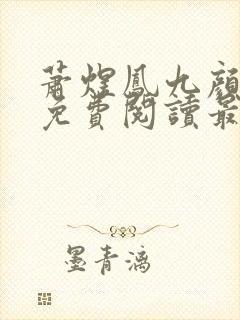 蕭煜鳳九顏
免費閱讀最
墨青漓